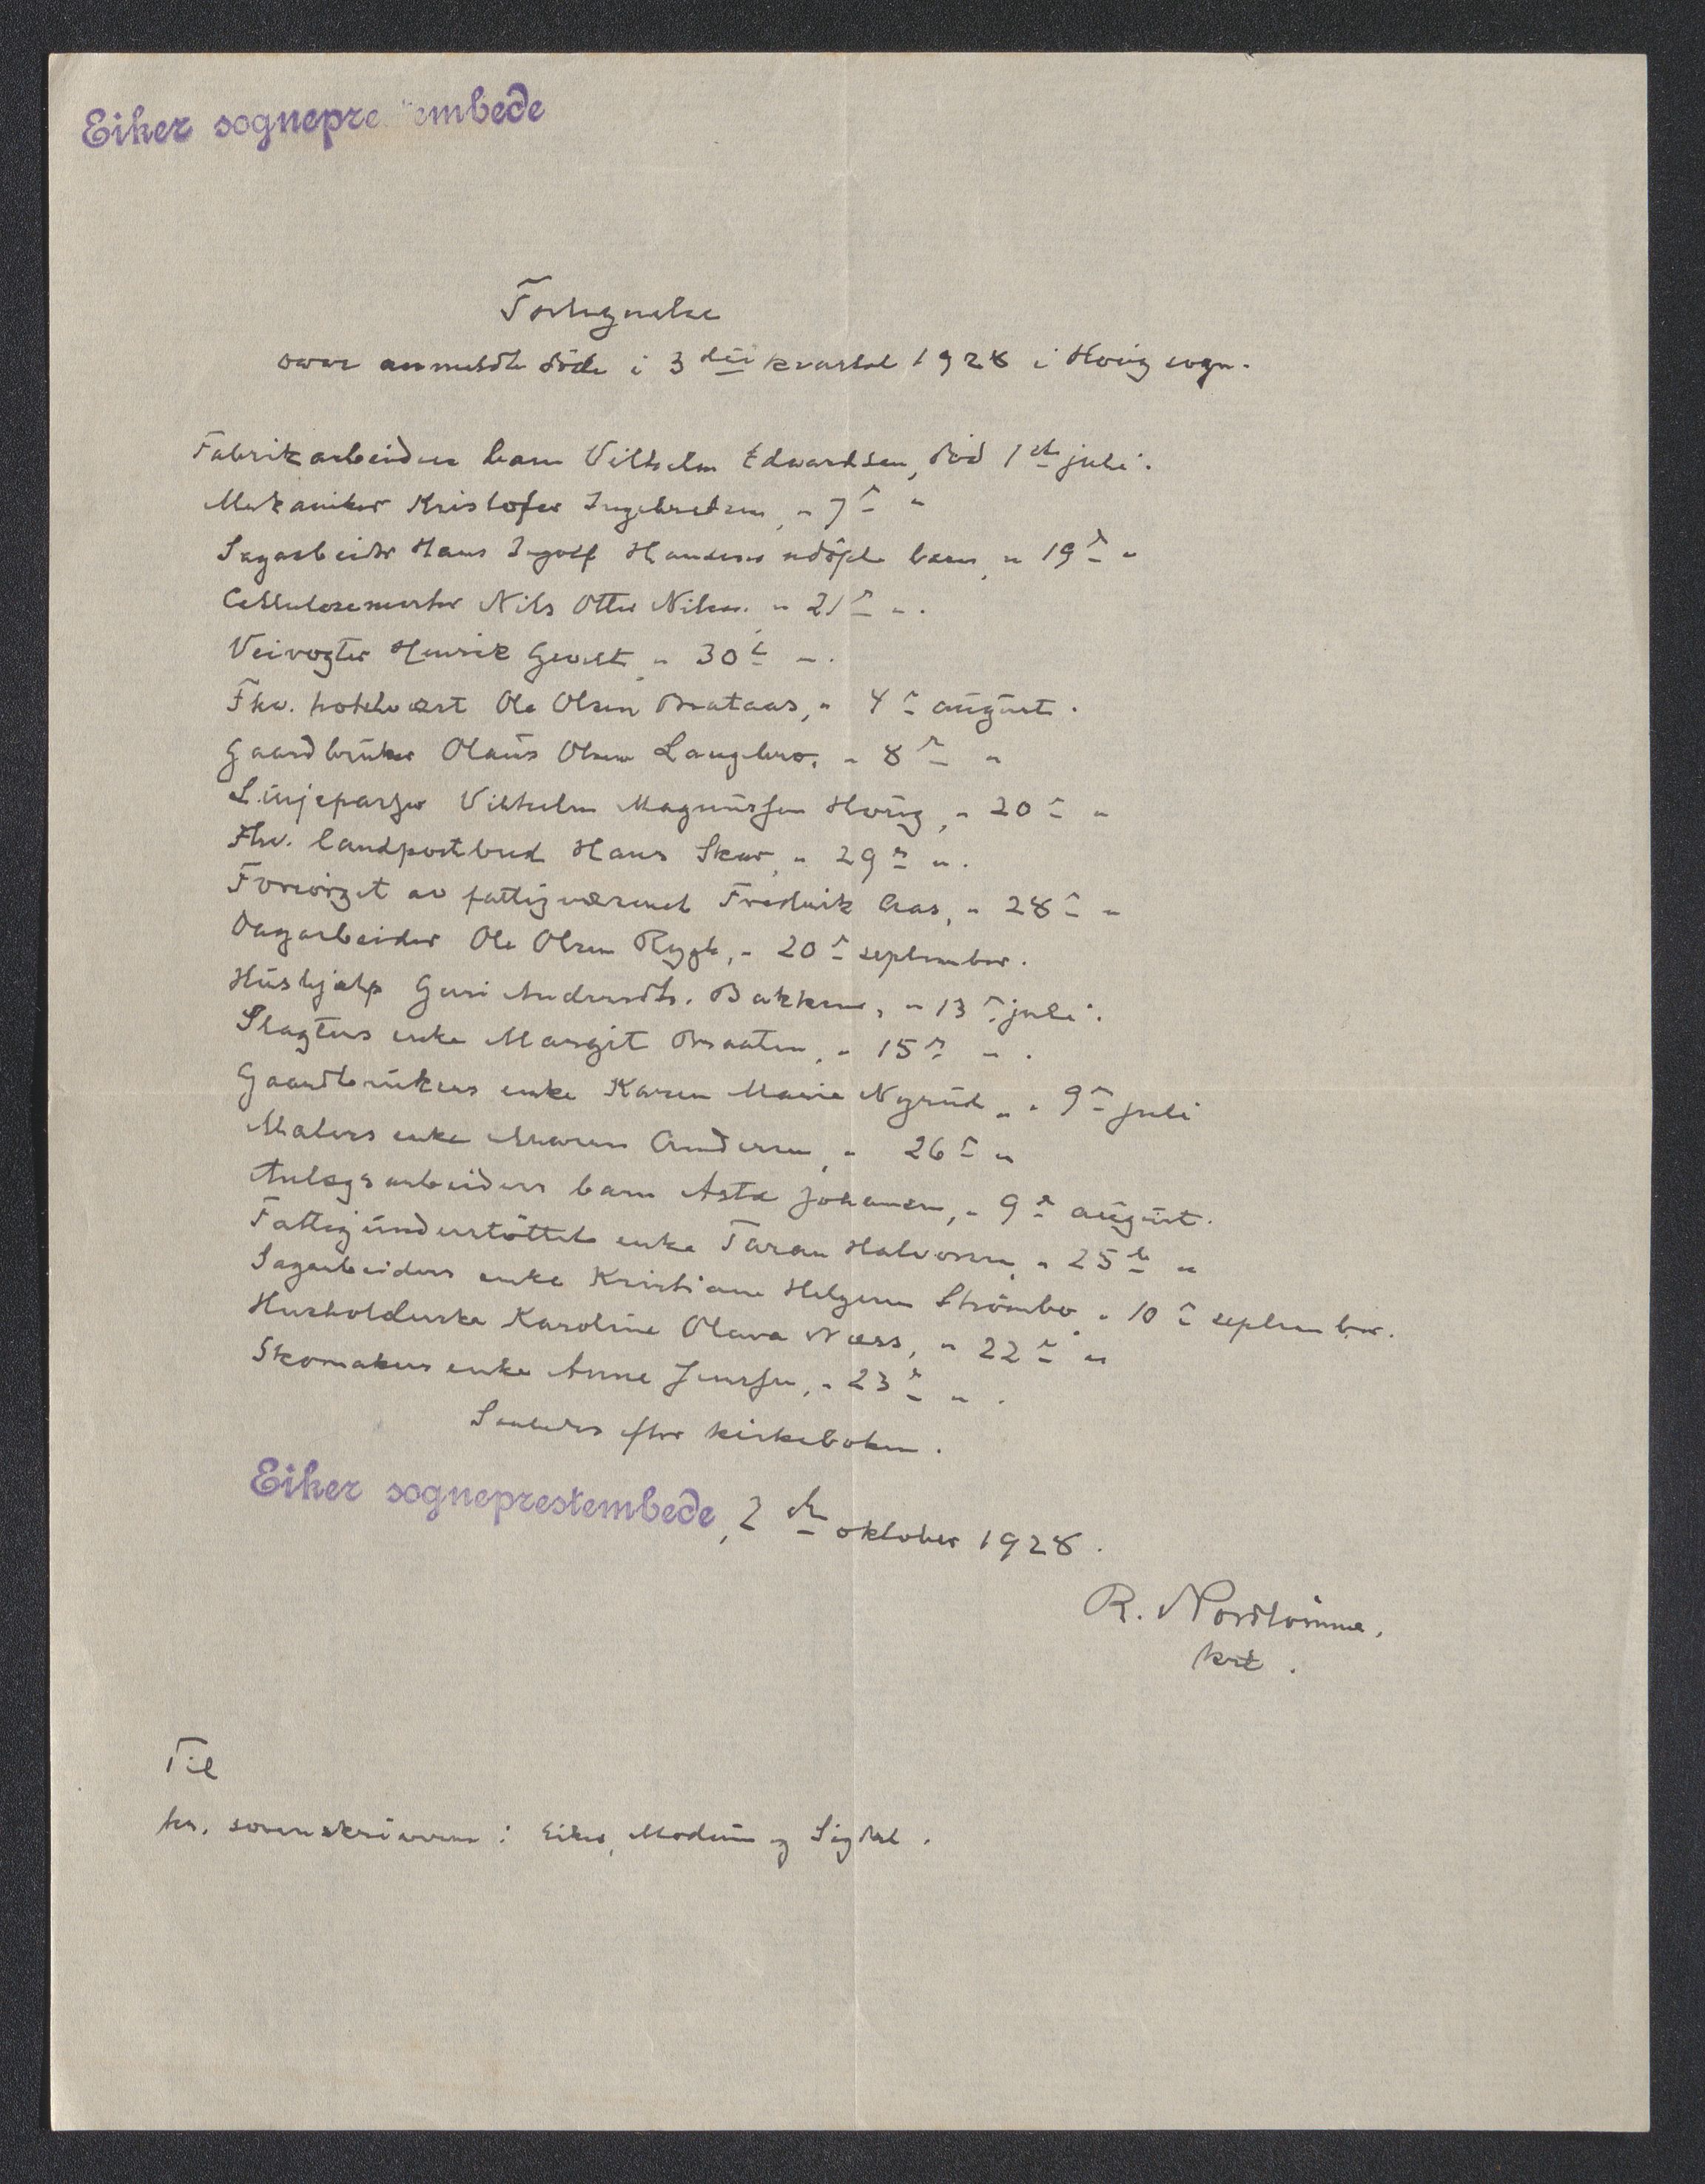 Eiker sognepre embede
Fortegnelse
over anmeldte döde i 3die kvartal 1928 i Hovig sogn.
Fabrikarbeider barn Vilhelm Edwardsen, död 1ste juli.
Mekaniker Kristofer Ingebretsen, " 7de "
Sagarbeider Hans Ingolf Hansens udöpte barn, " 19de "
Cellulosemester Nils Otter Nilsen. " 21de ".
Veivogter Henrik Gewelt, " 30te ".
Fhv. hotelvært Ole Olsen Braataas, " 4de august.
Gaardbruker Olaus Olsen Langebro, " 8de "
Linjepasser Vilhelm Magnussen Hovig, " 20de "
Fhv. landpostbud Hans Skar, " 29de ".
Forsörget av fattigvæsenet Fredrik Aas, " 28de "
Dagarbeider Ole Olsen Rygh, " 20de september.
Hushjælp Guri Andersdtr. Bakken, " 13de juli.
Slagters enke Margit Braaten, " 15de ".
Gaardbrukers enke Karen Marie Nyrud, " 9de juli
Malers enke Maren Andersen, " 26de "
Anlægsarbeiders barn Asta Johansen, " 9de august.
Fattigunderstöttet enke Taran Halvorsen, " 25de "
Sagarbeiders enke Kristiane Helgesen Strömbo, " 10de september.
Husholderske Karoline Olava Næss, " 22de "
Skomakers enke Anne Jenssen, " 23de ".
Saaledes efter kirkeboken.
Eiker sogneprestembede, 2den oktober 1928.
R. Nordtömme.
kst.
Til
hr. sorenskriveren i Eiker, Modum og Sigdal.